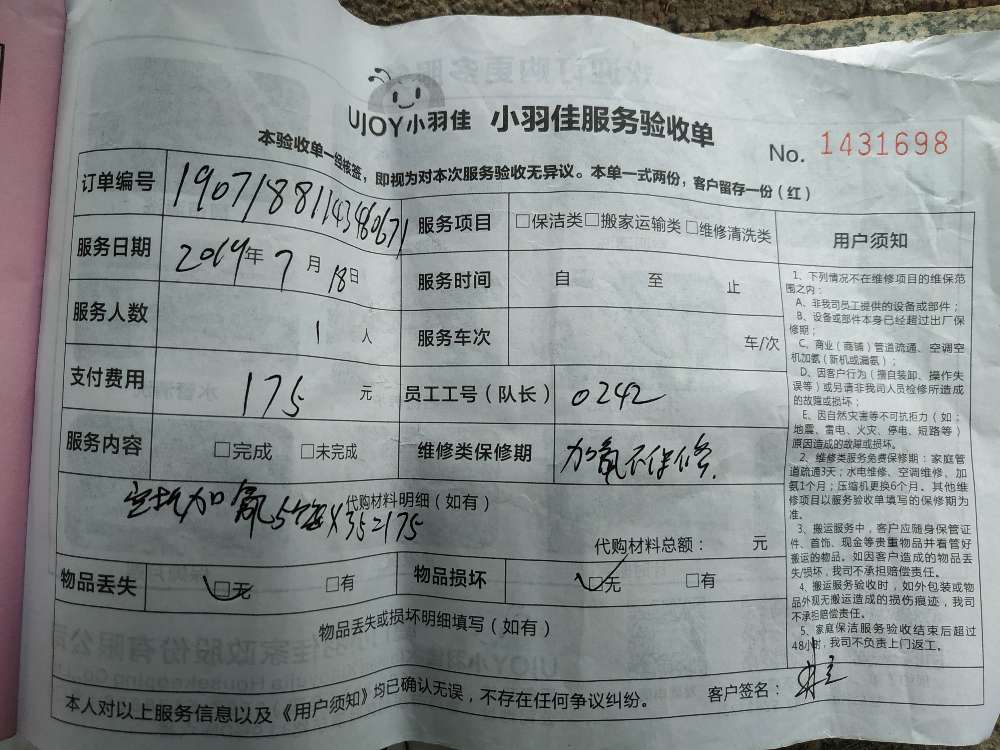 UJOY小羽佳 小羽佳服务验收单
No. 1431698
本验收单一经核签，即视为对本次服务验收无异议。本单一式两份，客户留存一份（红）
订单编号 190718811434860671
服务项目 □保洁类□搬家运输类□维修清洗类
服务日期 2019年7月18日
服务时间 自 至 止
服务人数 1人
服务车次 车/次
支付费用 175元
员工工号（队长） 0242
服务内容 □完成 □未完成
维修类保修期 加氟不保修.
代购材料明细（如有）
空挂加氟5 X35=175
代购材料总额： 元
物品丢失 □无 □有
物品损坏 □无 □有
物品丢失或损坏明细填写（如有）
本人对以上服务信息以及《用户须知》均已确认无误，不存在任何争议纠纷。
客户签名：
用户须知
1、下列情况不在维修项目的维保范
围之内：
A、非我司员工提供的设备或部件；
B、设备或部件本身已经超过出厂保
修期；
C、商业（商铺）管道疏通、空调空
机加氨（新机或漏氨）；
D、因客户行为（擅自装卸、操作失
误等）或另请非我司人员检修所造成
的故障或损坏；
E、因自然灾害等不可抗拒力（如：
地震、雷电、火灾、停电、短路等）
原因造成的故障或损坏。
2、维修类服务免费保修期：家庭管
道疏通3天；水电维修、空调维修、加
氨1个月；压缩机更换6个月。其他维
修项目以服务验收单填写的保修期为
准。
3、搬运服务中，客户应随身保管证
件、首饰、现金等贵重物品并看管好
搬运的物品。如因客户造成的物品丢
失/损坏，我司不承担赔偿责任。
4、搬运服务验收时，如外包装或物
品外观无搬运造成的损伤痕迹，我司
不承担赔偿责任。
5、家庭保洁服务验收结束后超过
48小时，我司不负责上门返工。